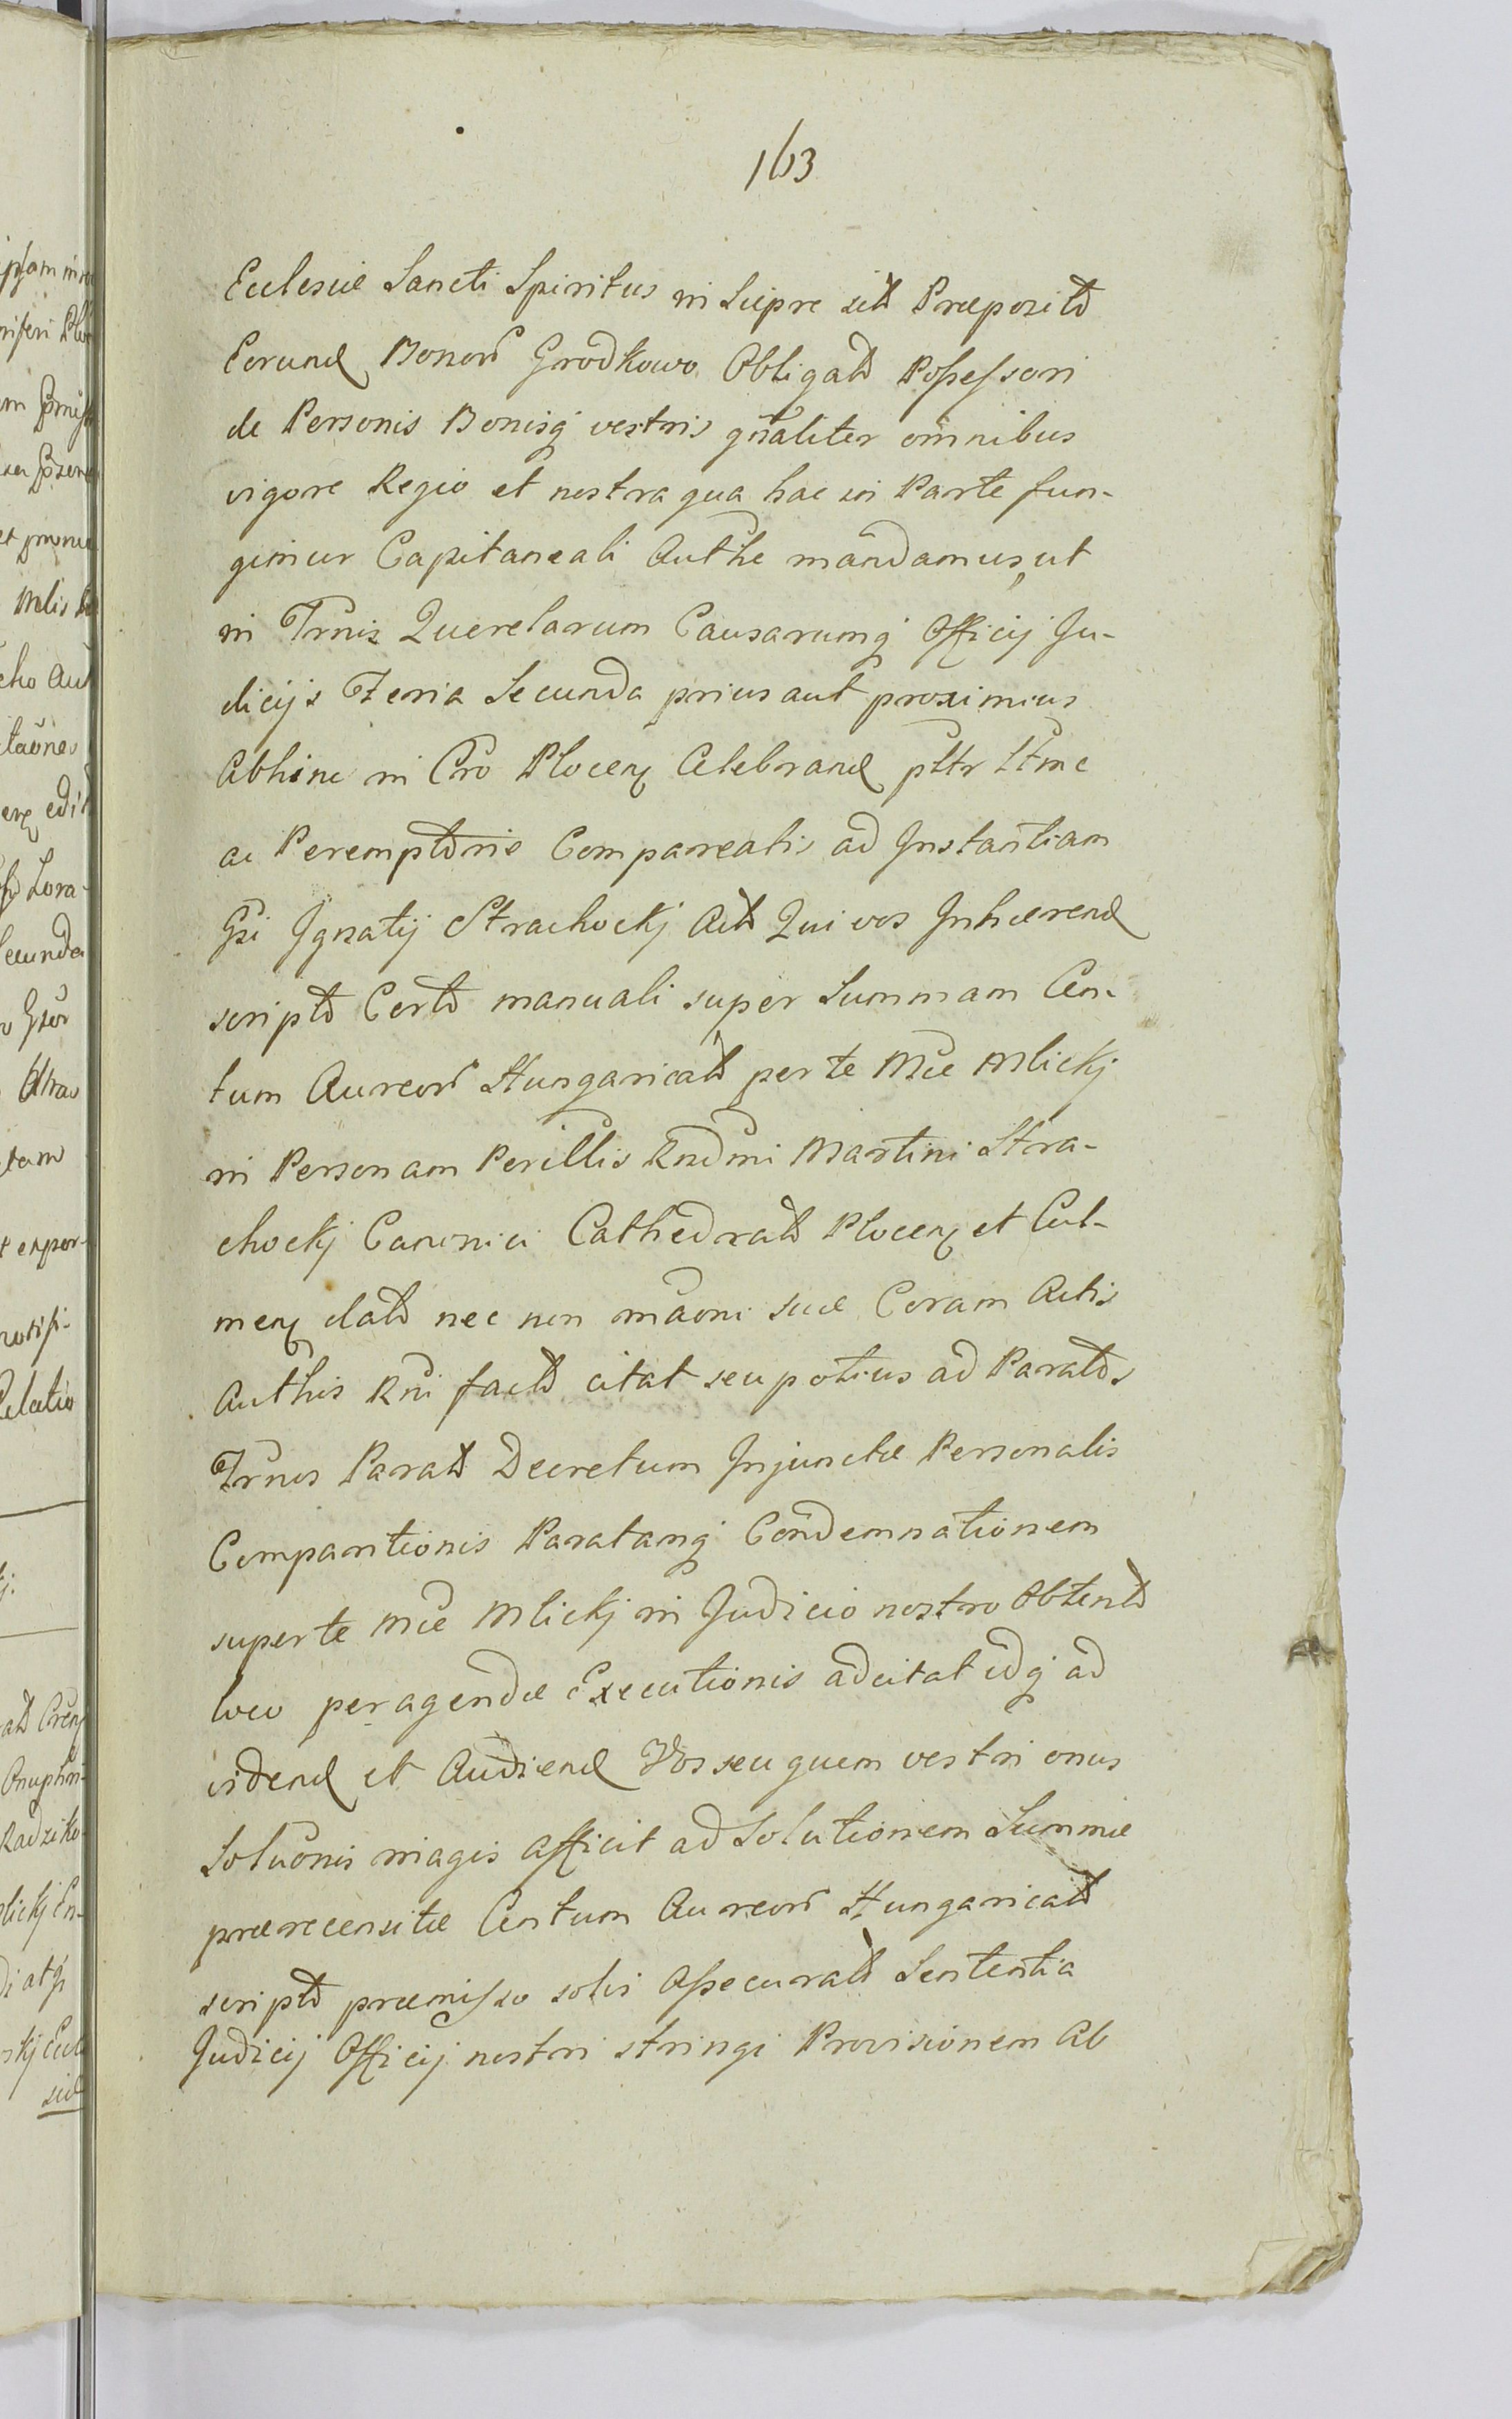 163
Ecclesiæ Sancti Spiritus in Sierpc sitt Præpositt
Eorund Bonor Grodkowo Obligatt Possessori
de Personis Bonisq vestris gnaliter omnibus
vigore Regio et nostra qua hac in Parte fun-
gimur Capitaneali Autthe mandamus, ut
in Trnis Querelarum Causarumq Officij Ju-
dicijs Feria Secunda prius aut proximius
Abhinc in Cro Plocen Celebrand pttr ltme
ac Peremptorie Compareatis ad Instantiam
Gsi Ignatij Strachockj Actt Qui vos Inhærend
scriptt Certt manuali super Summam Cen-
tum Aureor Hungaricatt per te Mce Mlickj
in Personam Perillis Rndmi Martini Stra-
chockj Canonici Cathedratt Plocen et Cul-
men datt nec non maoni suæ Coram Actis
Authis Rni factt citat seu potius ad Paratos
Trnos Paratt Decretum Injunctæ Personalis
Comparitionis Paratamq Condemnationem
super te Mce Mlickj in Judicio nostro Obtentt
loco peragendæ Executionis adcitat idq ad
vidend et Audiend Vos seu quem vestri onus
Soluonis magis afficit ad Solutionem Summæ
prærecensitæ Centum Aureor Hungaricatt
scriptt præmisso solvi Assecuratt Sententia
Judicij Officij nostri stringi Provisionem Ab